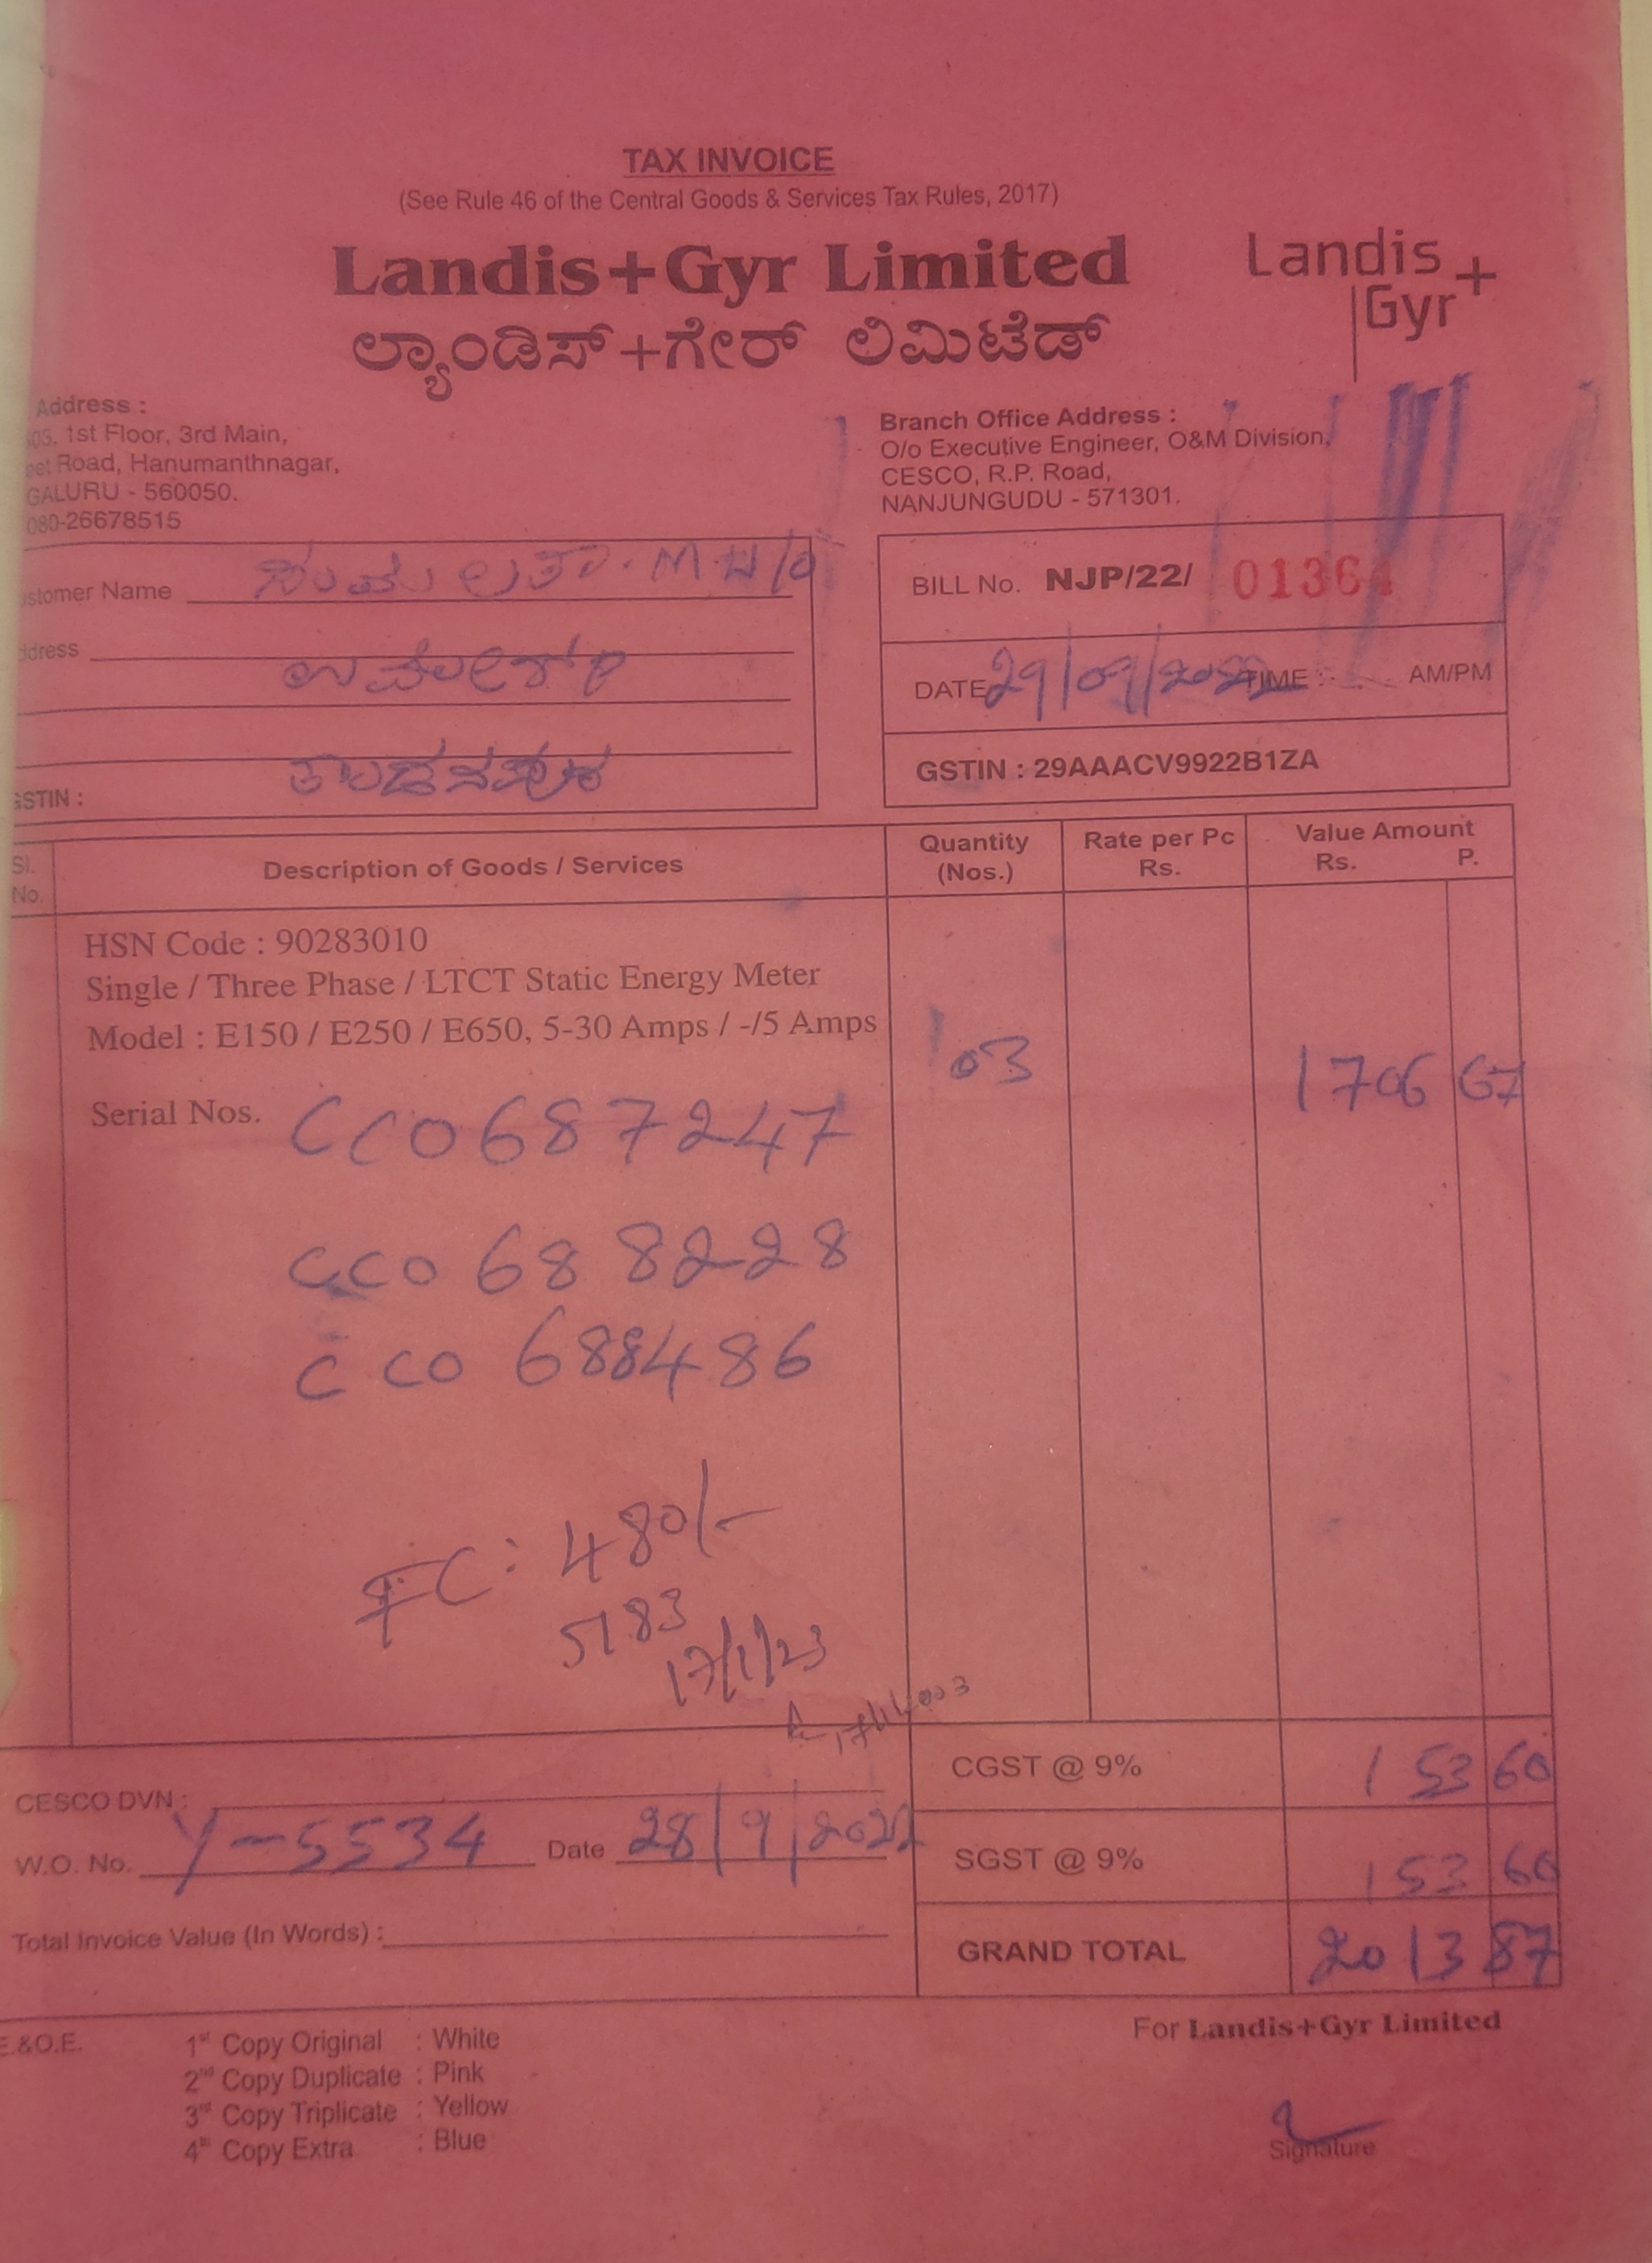 TAX INVOICE
(See Rule 46 of the Central Goods & Services Tax Rules, 2017)
Landis+Gyr Limited
ಲ್ಯಾಂಡಿಸ್+ಗೇರ್ ಲಿಮಿಟೆಡ್
Landis+
Gyr
Address :
03, 1st Floor, 3rd Main,
Road, Hanumanthnagar,
GALURU - 560050.
080-26678515
Branch Office Address :
O/o Executive Engineer, O&M Division,
CESCO, R.P. Road,
NANJUNGUDU - 571301.
stomer Name ಲತಾ. M W/o
ddress ಉಮೇಶ್
GSTIN :
BILL No. NJP/22/ 01364
DATE 29/09/2022 TIME : AM/PM
GSTIN : 29AAACV9922B1ZA
Sl. No. Description of Goods / Services Quantity (Nos.) Rate per Pc Rs. Value Amount Rs. P.
HSN Code : 90283010
Single / Three Phase / LTCT Static Energy Meter
Model : E150 / E250 / E650, 5-30 Amps / -/5 Amps
03 1706 67
Serial Nos. CC0687247
CC0688228
CC0688486
FC: 480/-
5183
17/1/23
CGST @ 9% 153 60
CESCO DVN :
W.O. No. Y-5534 Date 28/9/2022
SGST @ 9% 153 60
Total Invoice Value (In Words) :
GRAND TOTAL 2013 87
E.&O.E.
1st Copy Original : White
2nd Copy Duplicate : Pink
3rd Copy Triplicate : Yellow
4th Copy Extra : Blue
For Landis+Gyr Limited
Signature